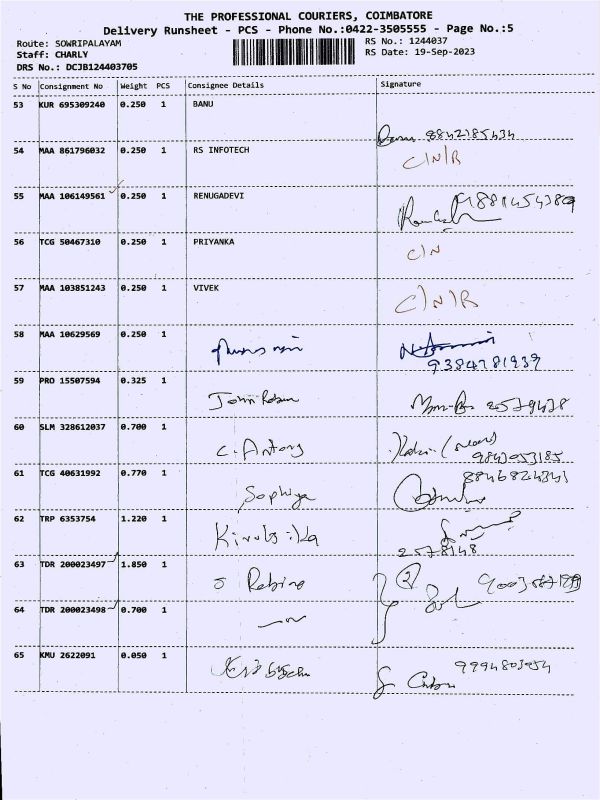 THE PROFESSIONAL COURIERS, COIMBATORE
Delivery Runsheet - PCS - Phone No.:0422-3505555 - Page No.:5
Route: SOWRIPALAYAM RS No.: 1244037
Staff: CHARLY RS Date: 19-Sep-2023
DRS No.: DCJB124403705
S No Consignment No Weight PCS Consignee Details Signature
53 KUR 695309240 0.250 1 BANU
8842185434
54 MAA 861796032 0.250 1 RS INFOTECH
C/N/R
55 MAA 106149561 0.250 1 RENUGADEVI
56 TCG 50467310 0.250 1 PRIYANKA
C/N
57 MAA 103851243 0.250 1 VIVEK
C/N/R
58 MAA 10629569 0.250 1
9384781939
59 PRO 15507594 0.325 1 John
60 SLM 328612037 0.700 1 C. Antony
61 TCG 40631992 0.770 1 Sophiya
62 TRP 6353754 1.220 1
2578148
63 TDR 200023497 1.850 1
64 TDR 200023498 0.700 1
65 KMU 2622091 0.050 1